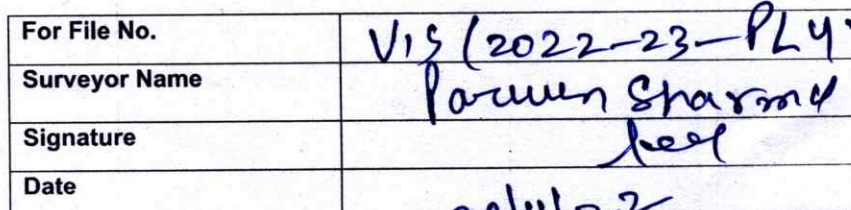 For File No. VIS (2022-23-PL4
Surveyor Name Parveen Sharma
Signature
Date